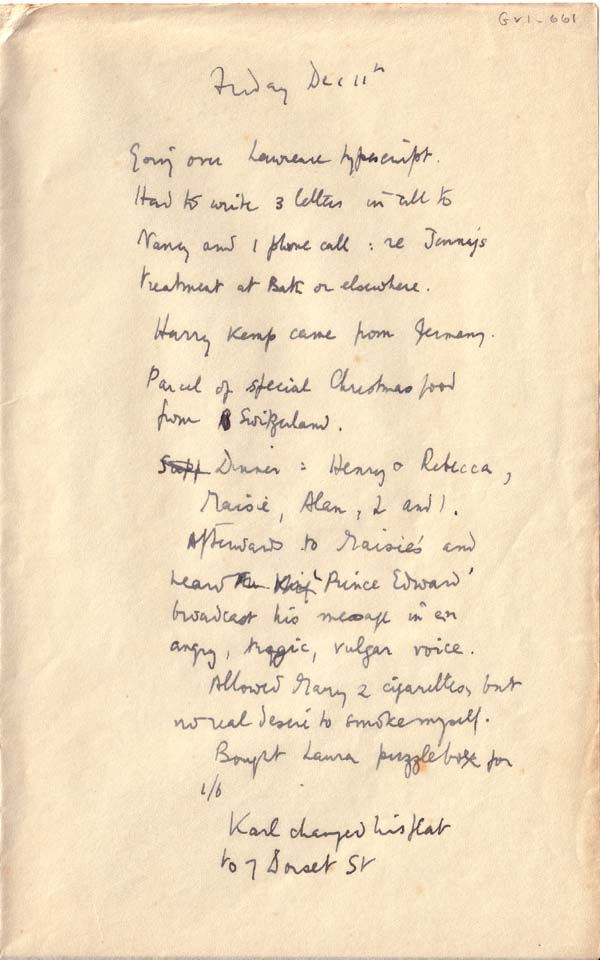 GV1-661
Friday Dec 11th
Going over Lawrence typescript.
Had to write 3 letters in all to
Nancy and 1 phone call : re Jenny's
treatment at Bath or elsewhere.
Harry Kemp came from Germany.
Parcel of special Christmas food
from Switzerland.
Supp Dinner : Henry & Rebecca,
Maisie, Alan, L and I.
Afterwards to Maisie's and
heard 'Prince Edward'
broadcast his message in an
angry, tragic, vulgar voice.
Allowed Mary 2 cigarettes, but
no real desire to smoke myself.
Bought Laura puzzle box for
1/6
Karl changed his flat
to 7 Dorset St